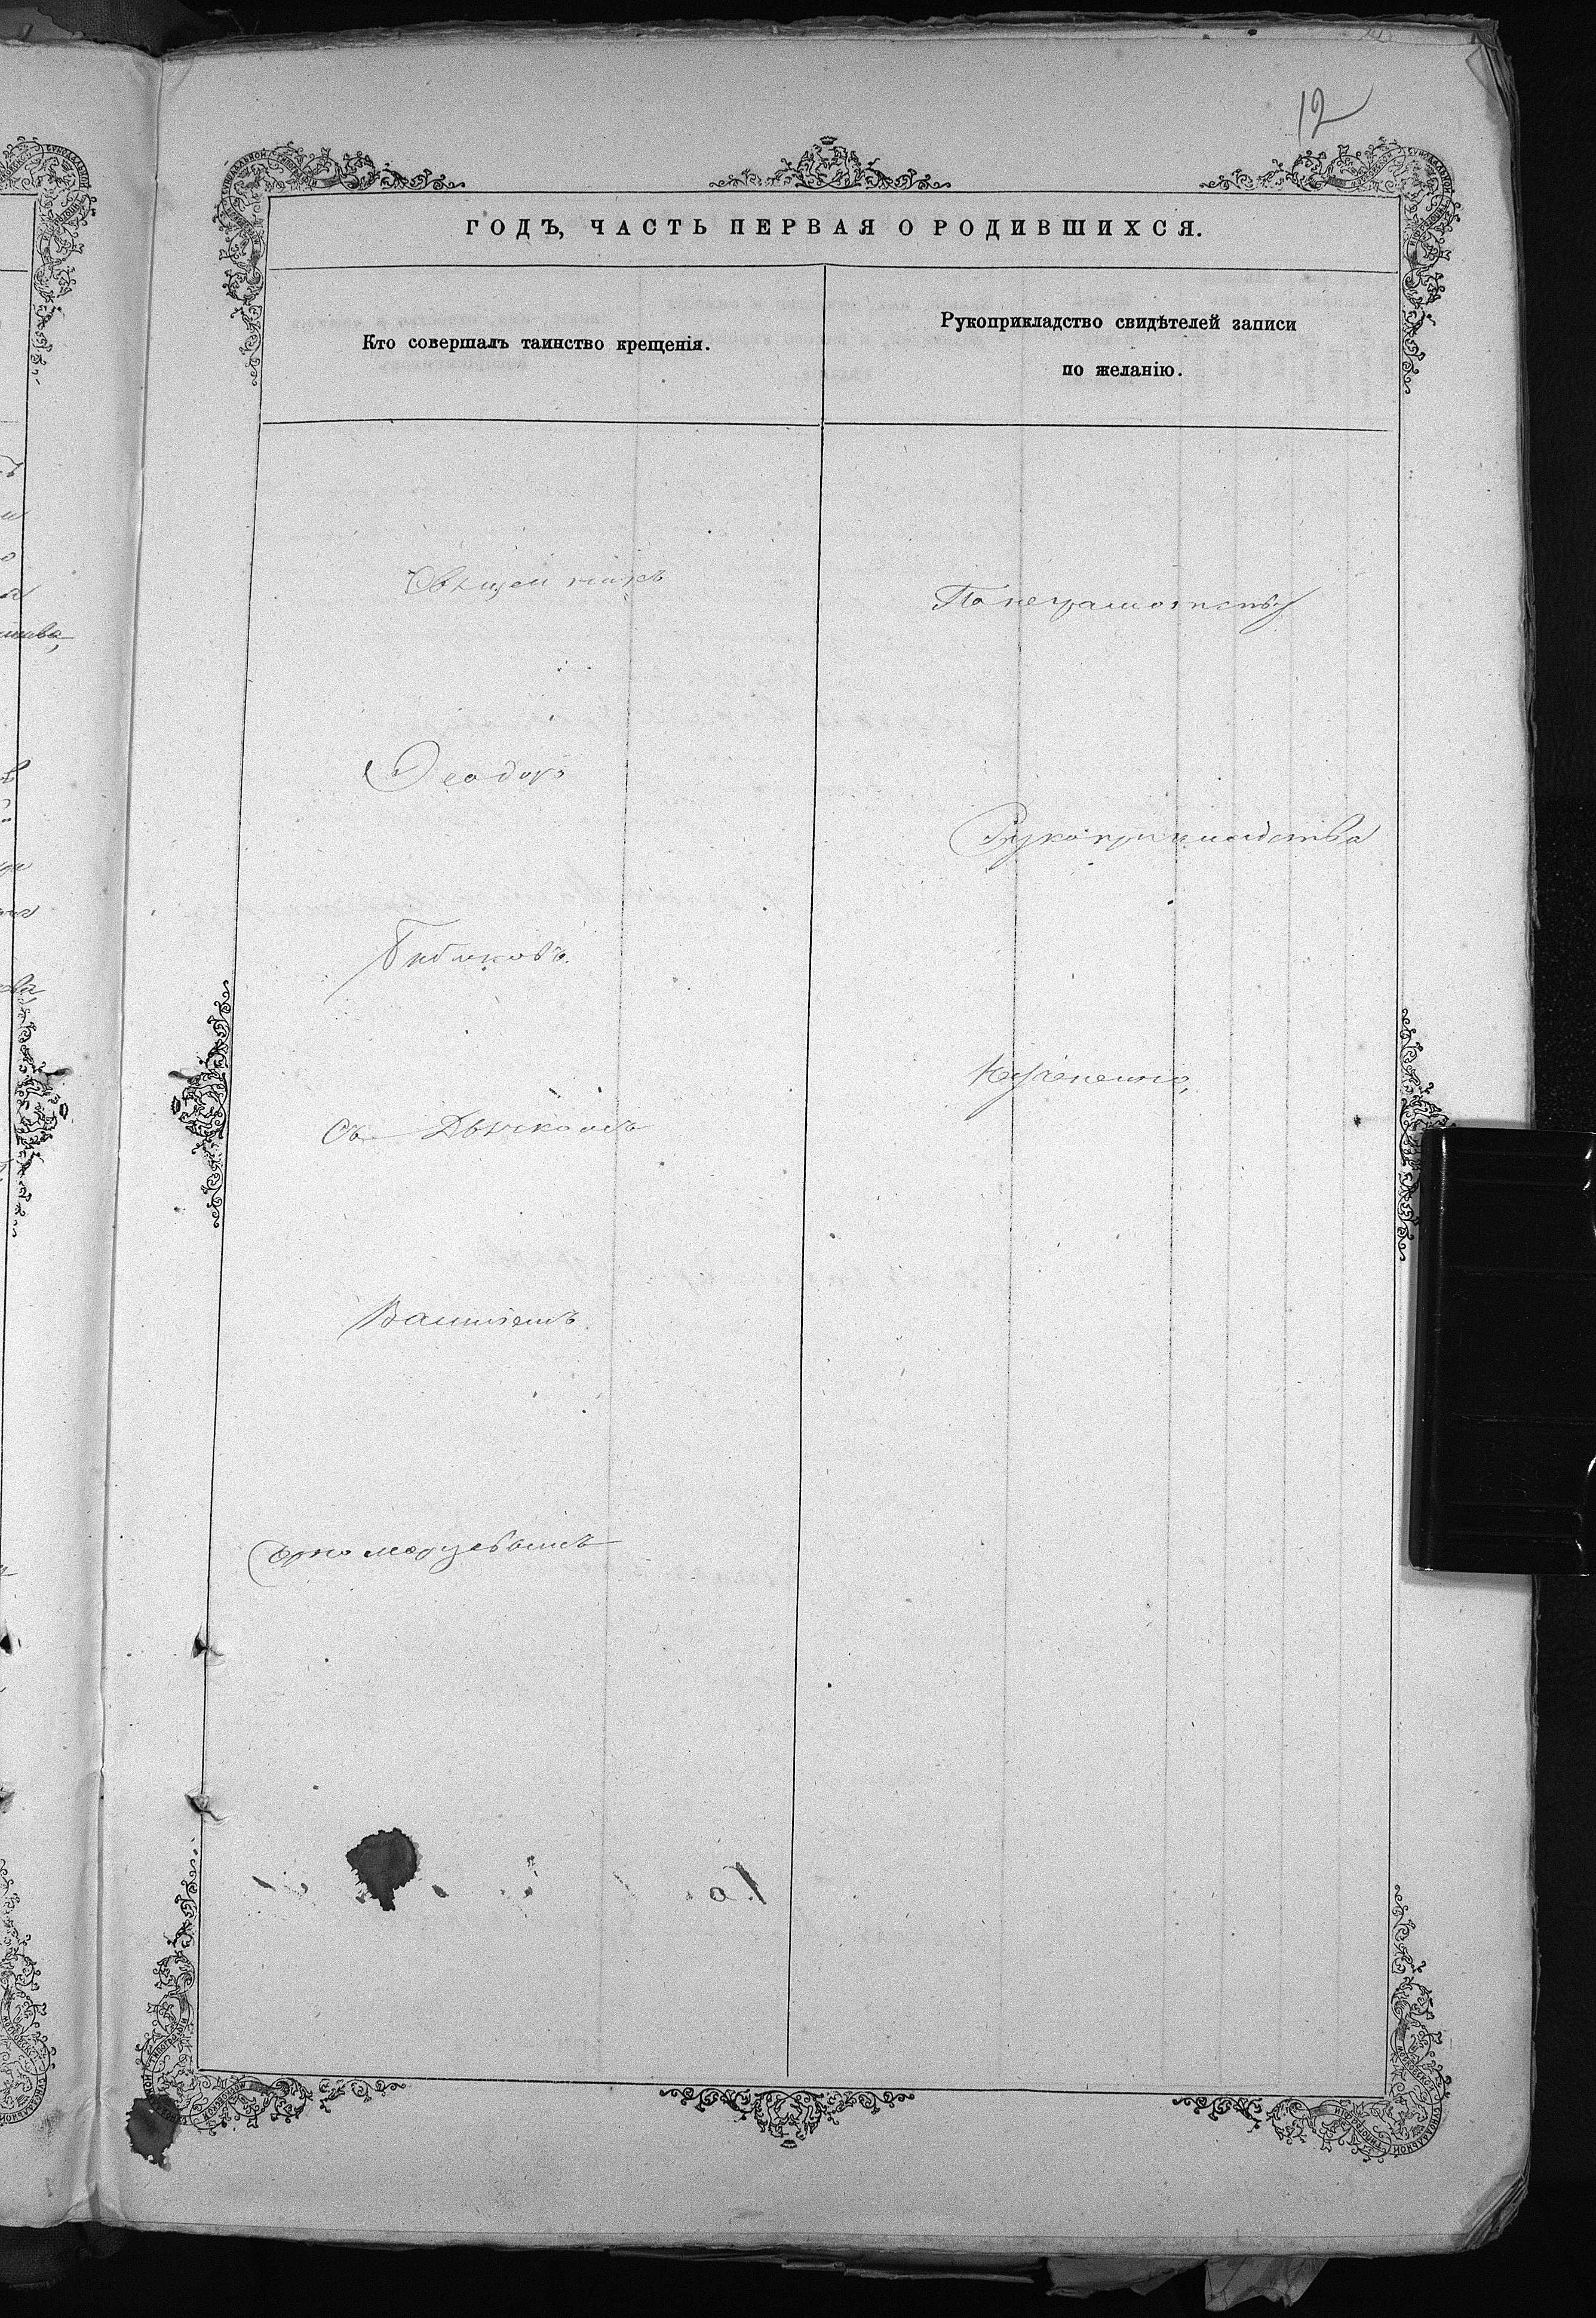 12
ГОДЪ, ЧАСТЬ ПЕРВАЯ О РОДИВШИХСЯ.
Кто совершалъ таинство крещенія.
Рукоприкладство свидѣтелей записи
по желанію.
Священникъ
Ѳеодоръ
Бибиковъ.
съ Дьячкомъ
По неграмотству
Рукоприкладства